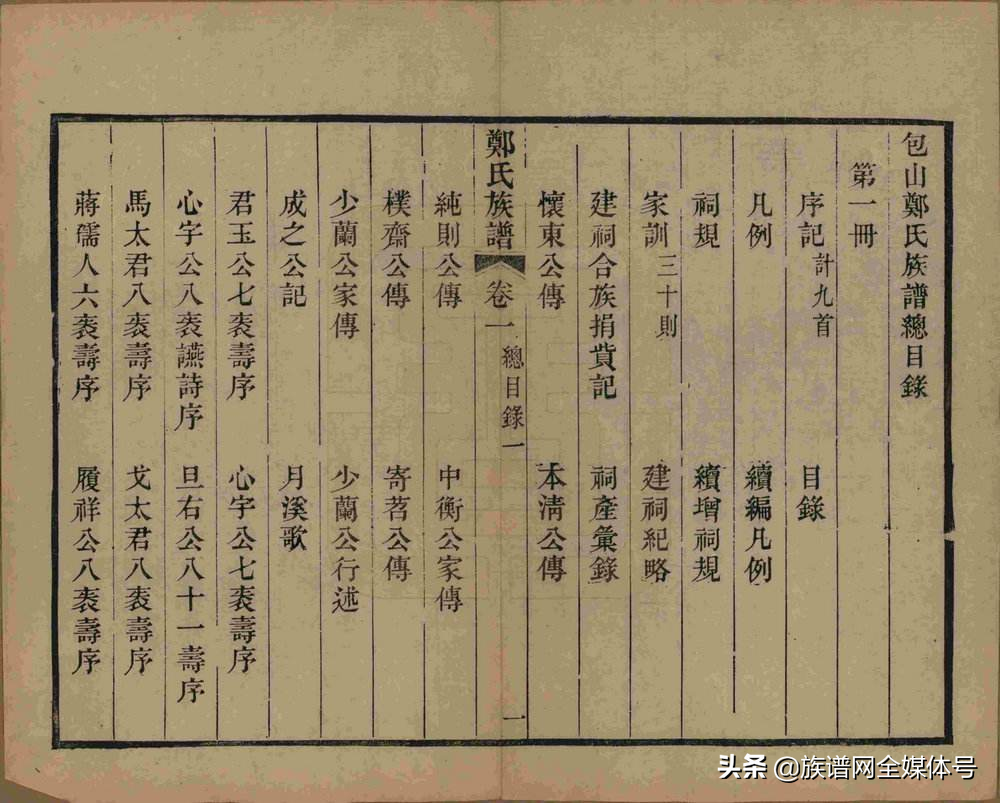 包山鄭氏族譜總目錄
第一冊
序記 計九首 目錄
凡例 續編凡例
祠規 續增祠規
家訓 三十則 建祠紀略
建祠合族捐貲記 祠產彙錄
懷東公傳 本淸公傳
鄭氏族譜 卷一 總目錄 一 一
純則公傳 中衡公家傳
樸齋公傳 寄茗公傳
少蘭公家傳 少蘭公行述
成之公記 月溪歌
君玉公七袠壽序 心字公七袠壽序
心字公八袠讌詩序 旦右公八十一壽序
馬太君八袠壽序 戈太君八袠壽序
蔣儒人六袠壽序 履祥公八袠壽序
头条 @族谱网全媒体号